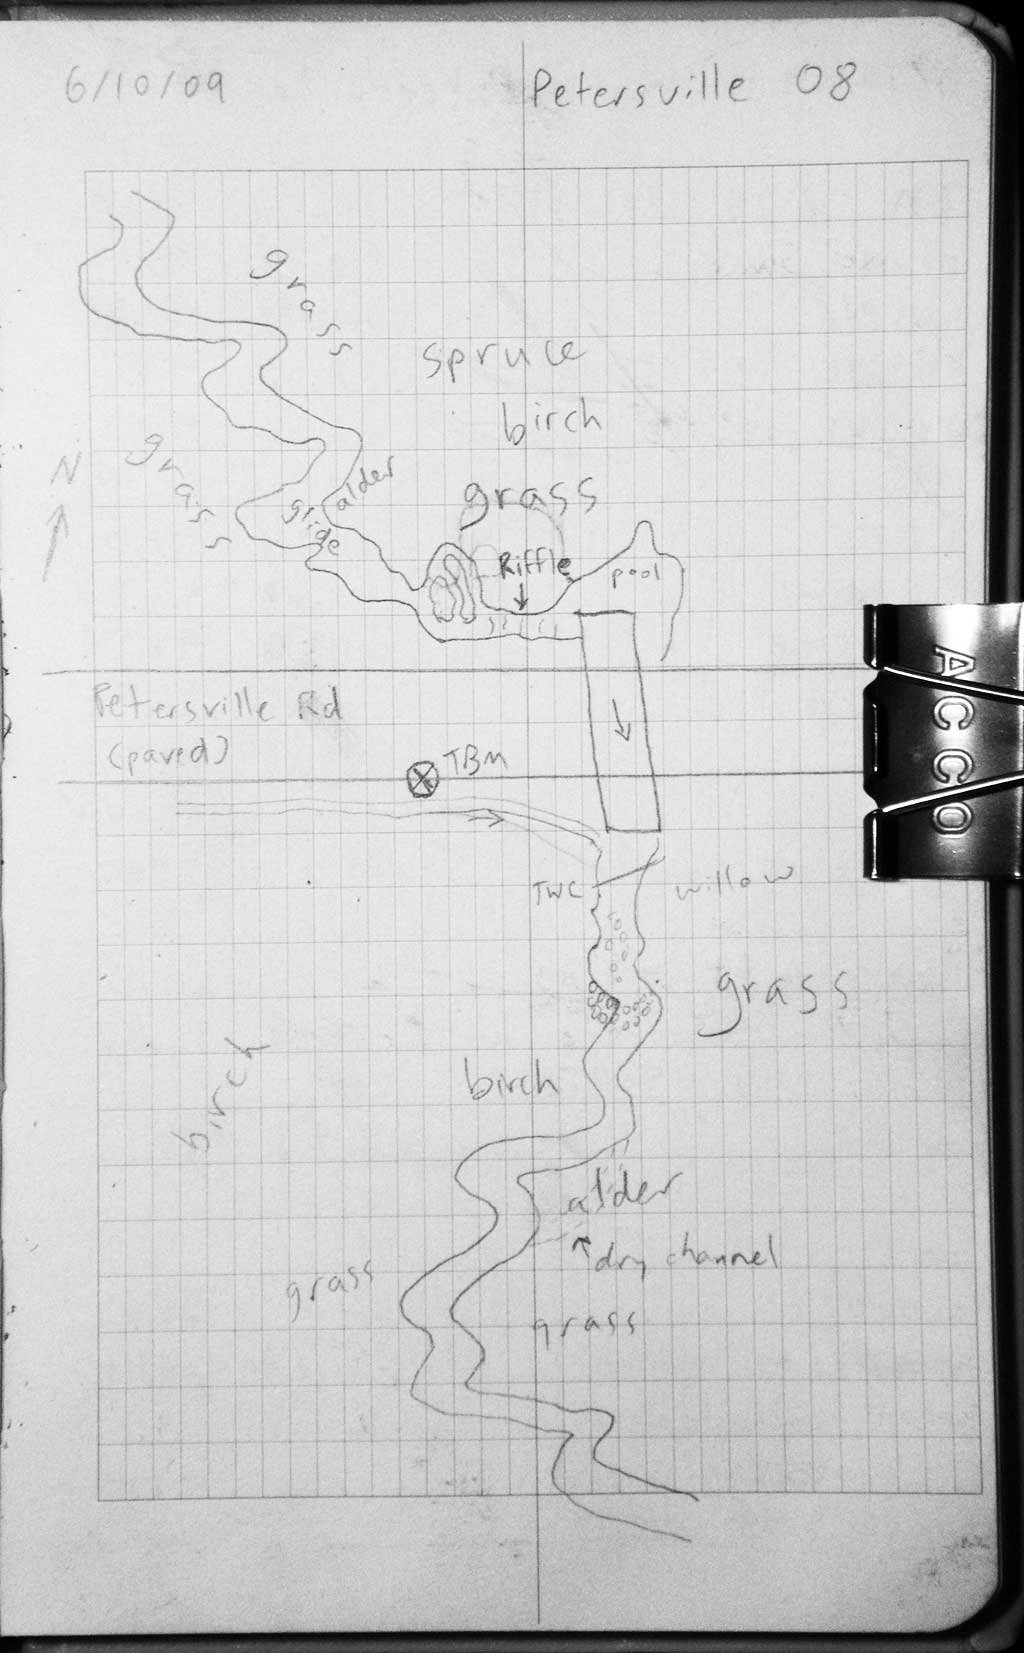 6/10/09
Petersville 08
grass
spruce
birch
grass
N
alder
glide
grass
Riffle
pool
Petersville Rd
(paved)
TBM
TWC
willow
grass
birch
birch
alder
dry channel
grass
grass
ACCO